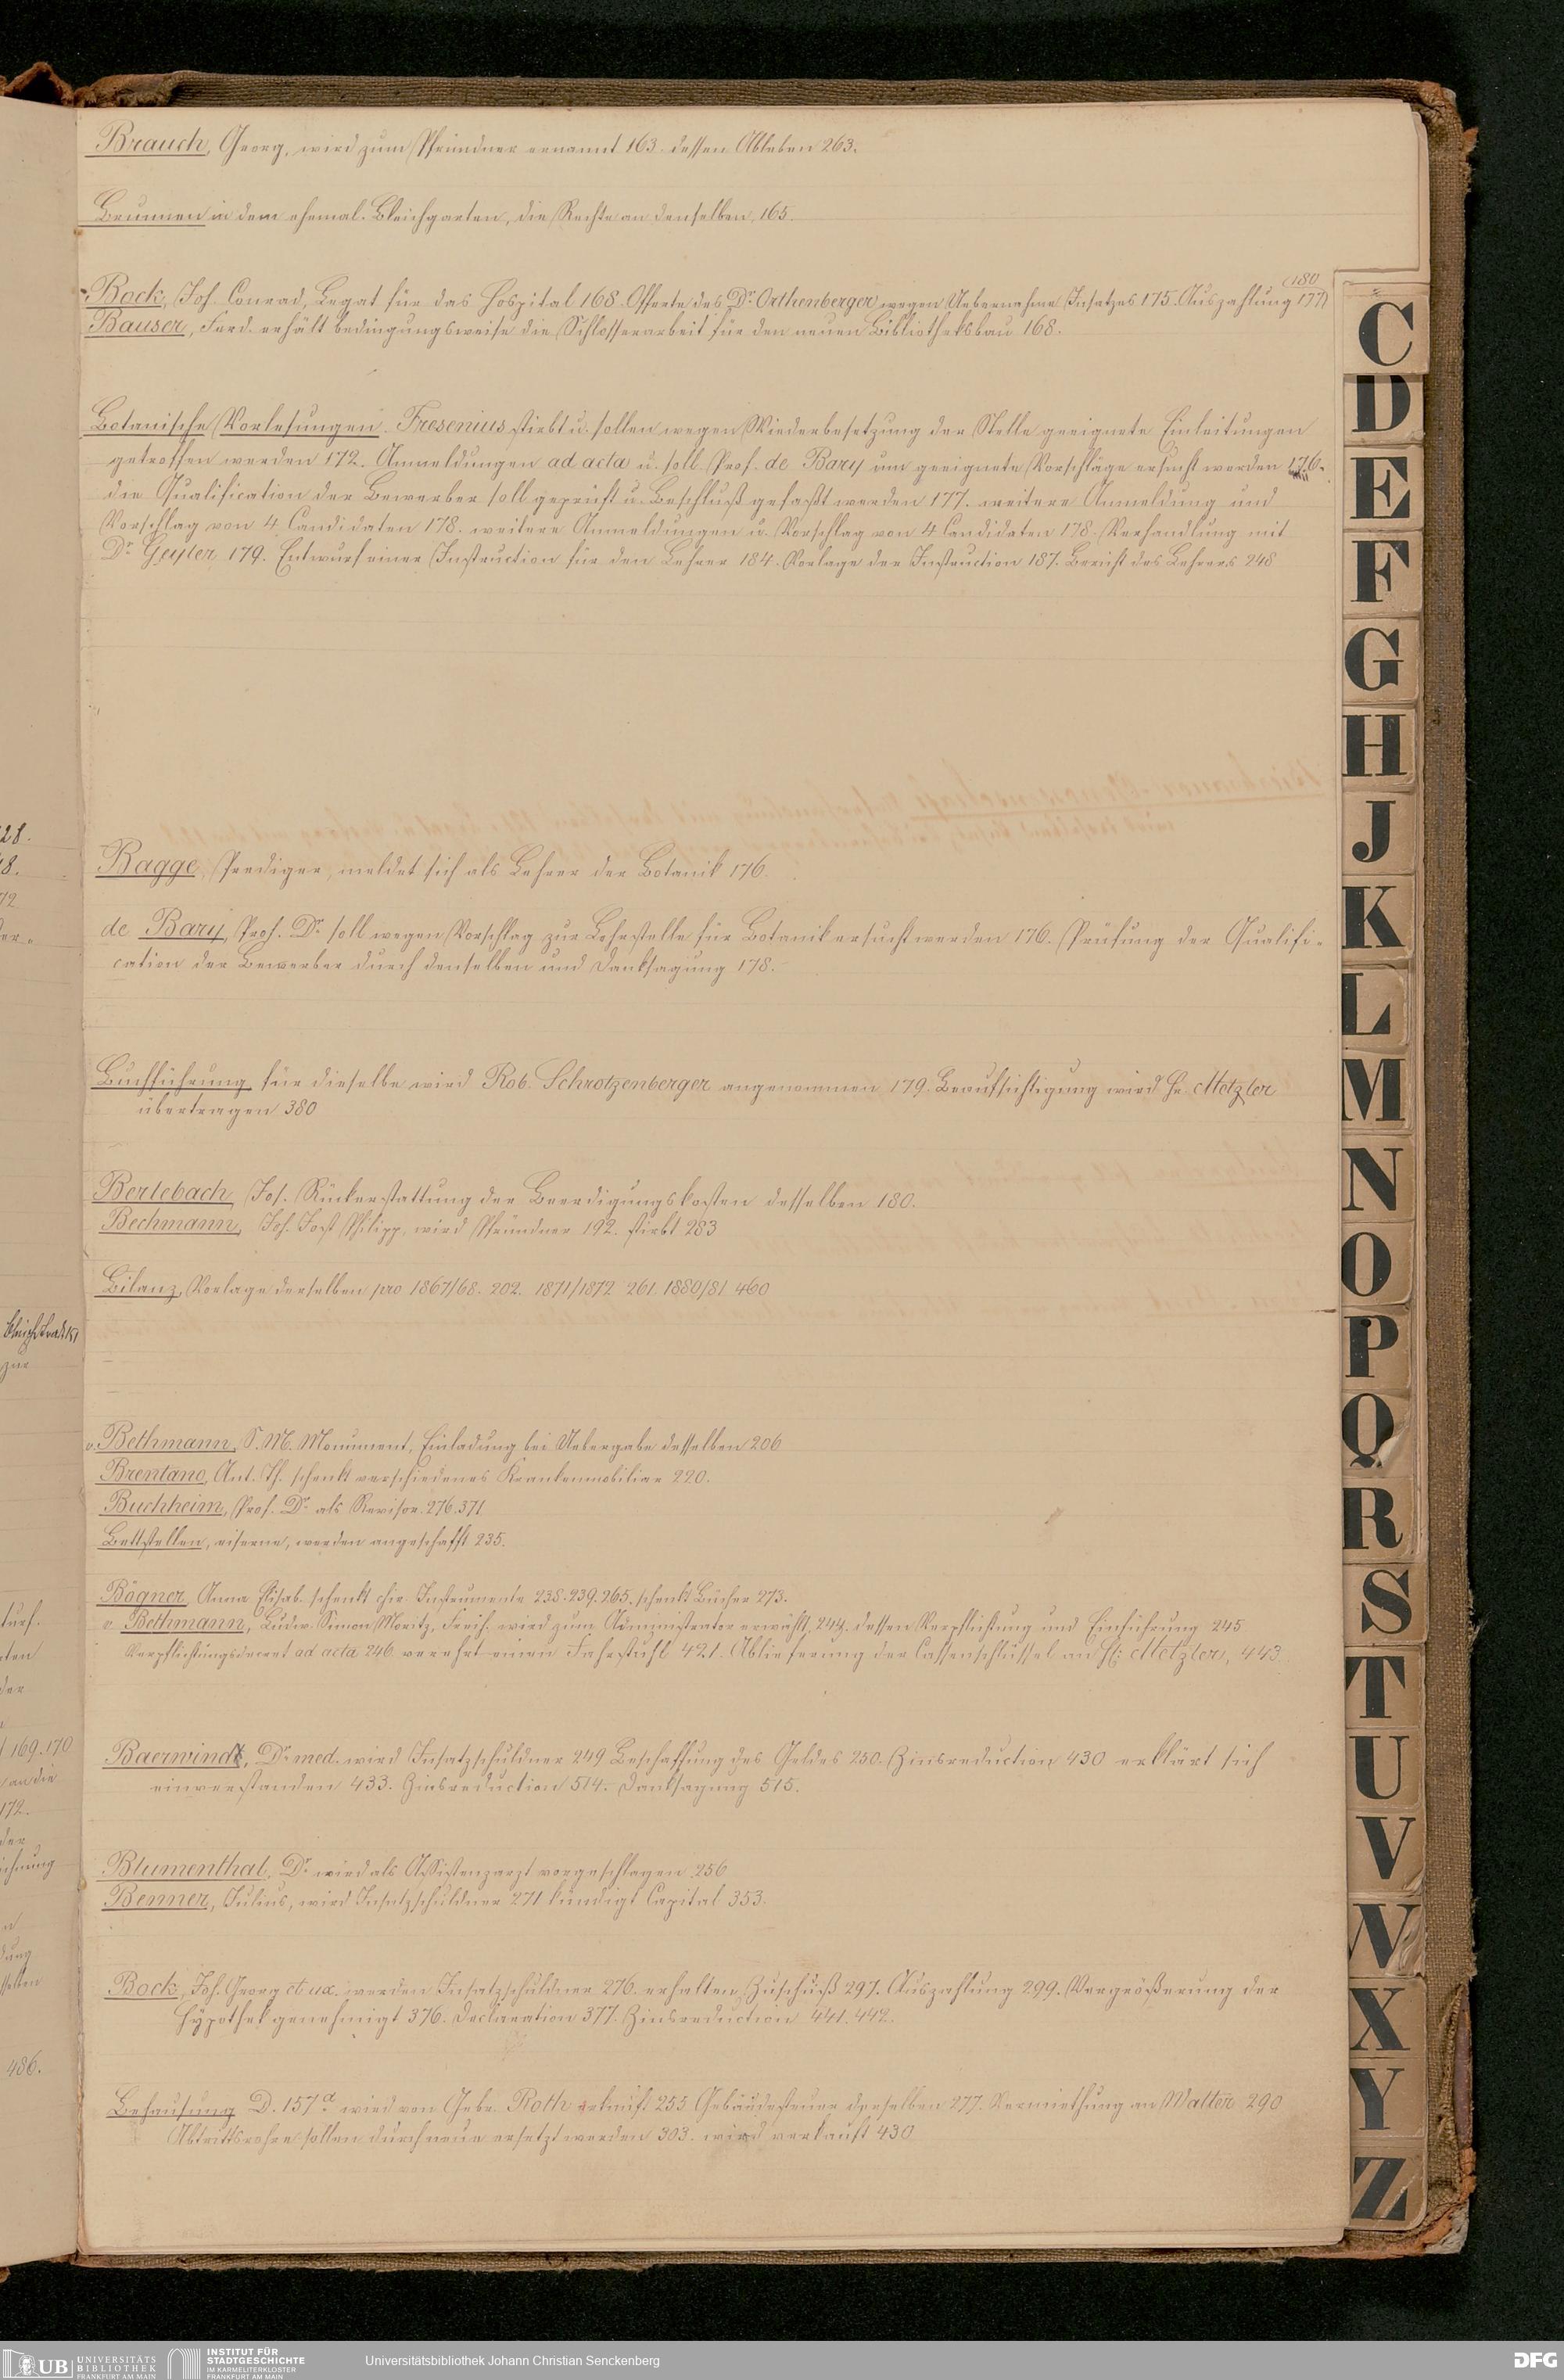 Brauch, Georg, wird zum Pfründner ernannt 163. dessen Ableben 263.
Brunnen in dem ehemal. Bleichgarten, die Rechte an denselben, 165.
180
Bock, Joh. Conrad, Legat für das Hospital 168. Offerte des Dr. Orthenberger wegen Uebernahme Insatzes 175. Auszahlung 177
Bauser, Ferd. erhält bedingungsweise die Schlosserarbeit für den neuen Bibliotheksbau 168.
Botanische Vorlesungen. Fresenius stirbt u. sollen wegen Wiederbesetzung der Stelle geeignete Einleitungen
getroffen werden 172. Anmeldungen ad acta u. soll Prof. de Bary um geeignete Vorschläge ersucht werden 176.
die Qualification der Bewerber soll geprüft u. Beschluß gefaßt werden 177. weitere Anmeldung und
Vorschlag von 4 Candidaten 178. weitere Anmeldungen u. Vorschlag von 4 Candidaten 178. Verhandlung mit
Dr. Geyler 179. Entwurf einer Instruction für den Lehrer 184. Vorlage der Instruction 187. Bericht des Lehrers 248
Bagge, Prediger, meldet sich als Lehrer der Botanik 176.
de Bary, Prof. Dr. soll wegen Vorschlag zur Lehrstelle für Botanik ersucht werden 176. Prüfung der Qualifi-
cation der Bewerber durch denselben und Danksagung 178.
Buchführung, für dieselbe wird Rob. Schrotzenberger angenommen 179. Beaufsichtigung wird Hr. Metzler
übertragen 380
Bertebach, Joh. Rückerstattung der Beerdigungskosten desselben 180.
Bechmann, Joh. Jost Philipp, wird Pfründner 192. stirbt 283
Bilanz, Vorlage derselben pro 1867/68. 202. 1871/1872 261. 1880/81 460
v. Bethmann, S. M. Monument, Einladung bei Uebergabe desselben 206
Brentano, Ant. Th. schenkt verschiedenes Krankenmobiliar 220.
Buchheim, Prof. Dr. als Revisor. 276. 371
Bettstellen, eiserne, werden angeschafft 235.
Bögner Anna Elisab. schenkt chir. Instrumente 238. 239. 265. schenkt Bücher 273.
v. Bethmann, Ludw. Simon Moritz, Freih. wird zum Administrator erwählt, 244. dessen Verpflichtung und Einführung 245
Verpflichtungsdecret ad acta 246. verehrt einen Fahrstuhl 421. Ablieferung der Cassenschlüssel an H: Metzler, 443.
Baerwindt, Dr. med. wird Insatzschuldner 249 Beschaffung des Geldes 250. Zinsreduction 430 erklärt sich
einverstanden 433. Zinsreduction 514. Danksagung 515.
Blumenthal, Dr. wird als Assistenzarzt vorgeschlagen 256
Benner, Julius, wird Insatzschuldner 271 kündigt Capital 353.
Bock, Joh. Georg et ux. werden Insatzschuldner 276. erhalten Zuschuß 297. Auszahlung 299. Vergrößerung der
Hypothek genehmigt 376. Declaration 377. Zinsreduction 441. 442.
Behausung D. 157a wird von Gebr. Roth erkauft 255 Gebäudesteuer derselben 277. Vermiethung an Walter 290
Abtrittsrohre sollen durch neue ersetzt werden 303. wird verkauft 430
C
D
E
F
G
H
J
K
L
M
N
O
P
Q
R
S
T
U
V
W
X
Y
Z
28.
8.
72
169. 170
an die
172.
der
486.
UB UNIVERSITÄTS BIBLIOTHEK FRANKFURT AM MAIN
INSTITUT FÜR STADTGESCHICHTE IM KARMELITERKLOSTER FRANKFURT AM MAIN
Universitätsbibliothek Johann Christian Senckenberg
DFG